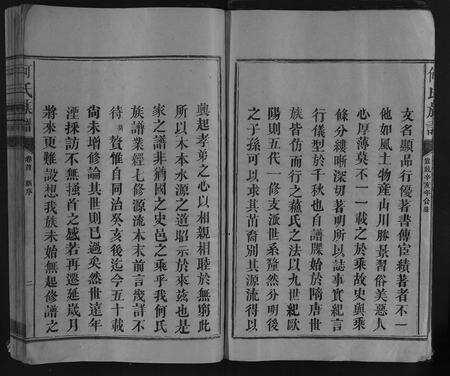 文名顯品行優著書傳宦績著者不一
他如風土物産山川勝景習俗美惡人
心厚薄莫不一一載之於乘故史與乘
條分縷晰深切著明所以誌事實紀言
行儀型於千秋也自譜牒始於隋唐世
族皆仿而行之蘓氏之法以九世紀歐
陽則五代一修支派世系瞭然分明後
之子孫可以求其苗裔別其源流得以
興起孝弟之心以相親相睦於無窮此
所以木本水源之道昭示於來茲也是
家之譜非猶國之史邑之乘乎我何氏
族譜業經七修源流本末前言幾詳不
待 贅惟自同治癸亥後迄今五十載
尙未增修論其世則已過矣然世遠年
湮採訪不無掻首之感若再遷延歲月
將來更難設想我族未始無起修譜之
何氏族譜
卷首 新序
二